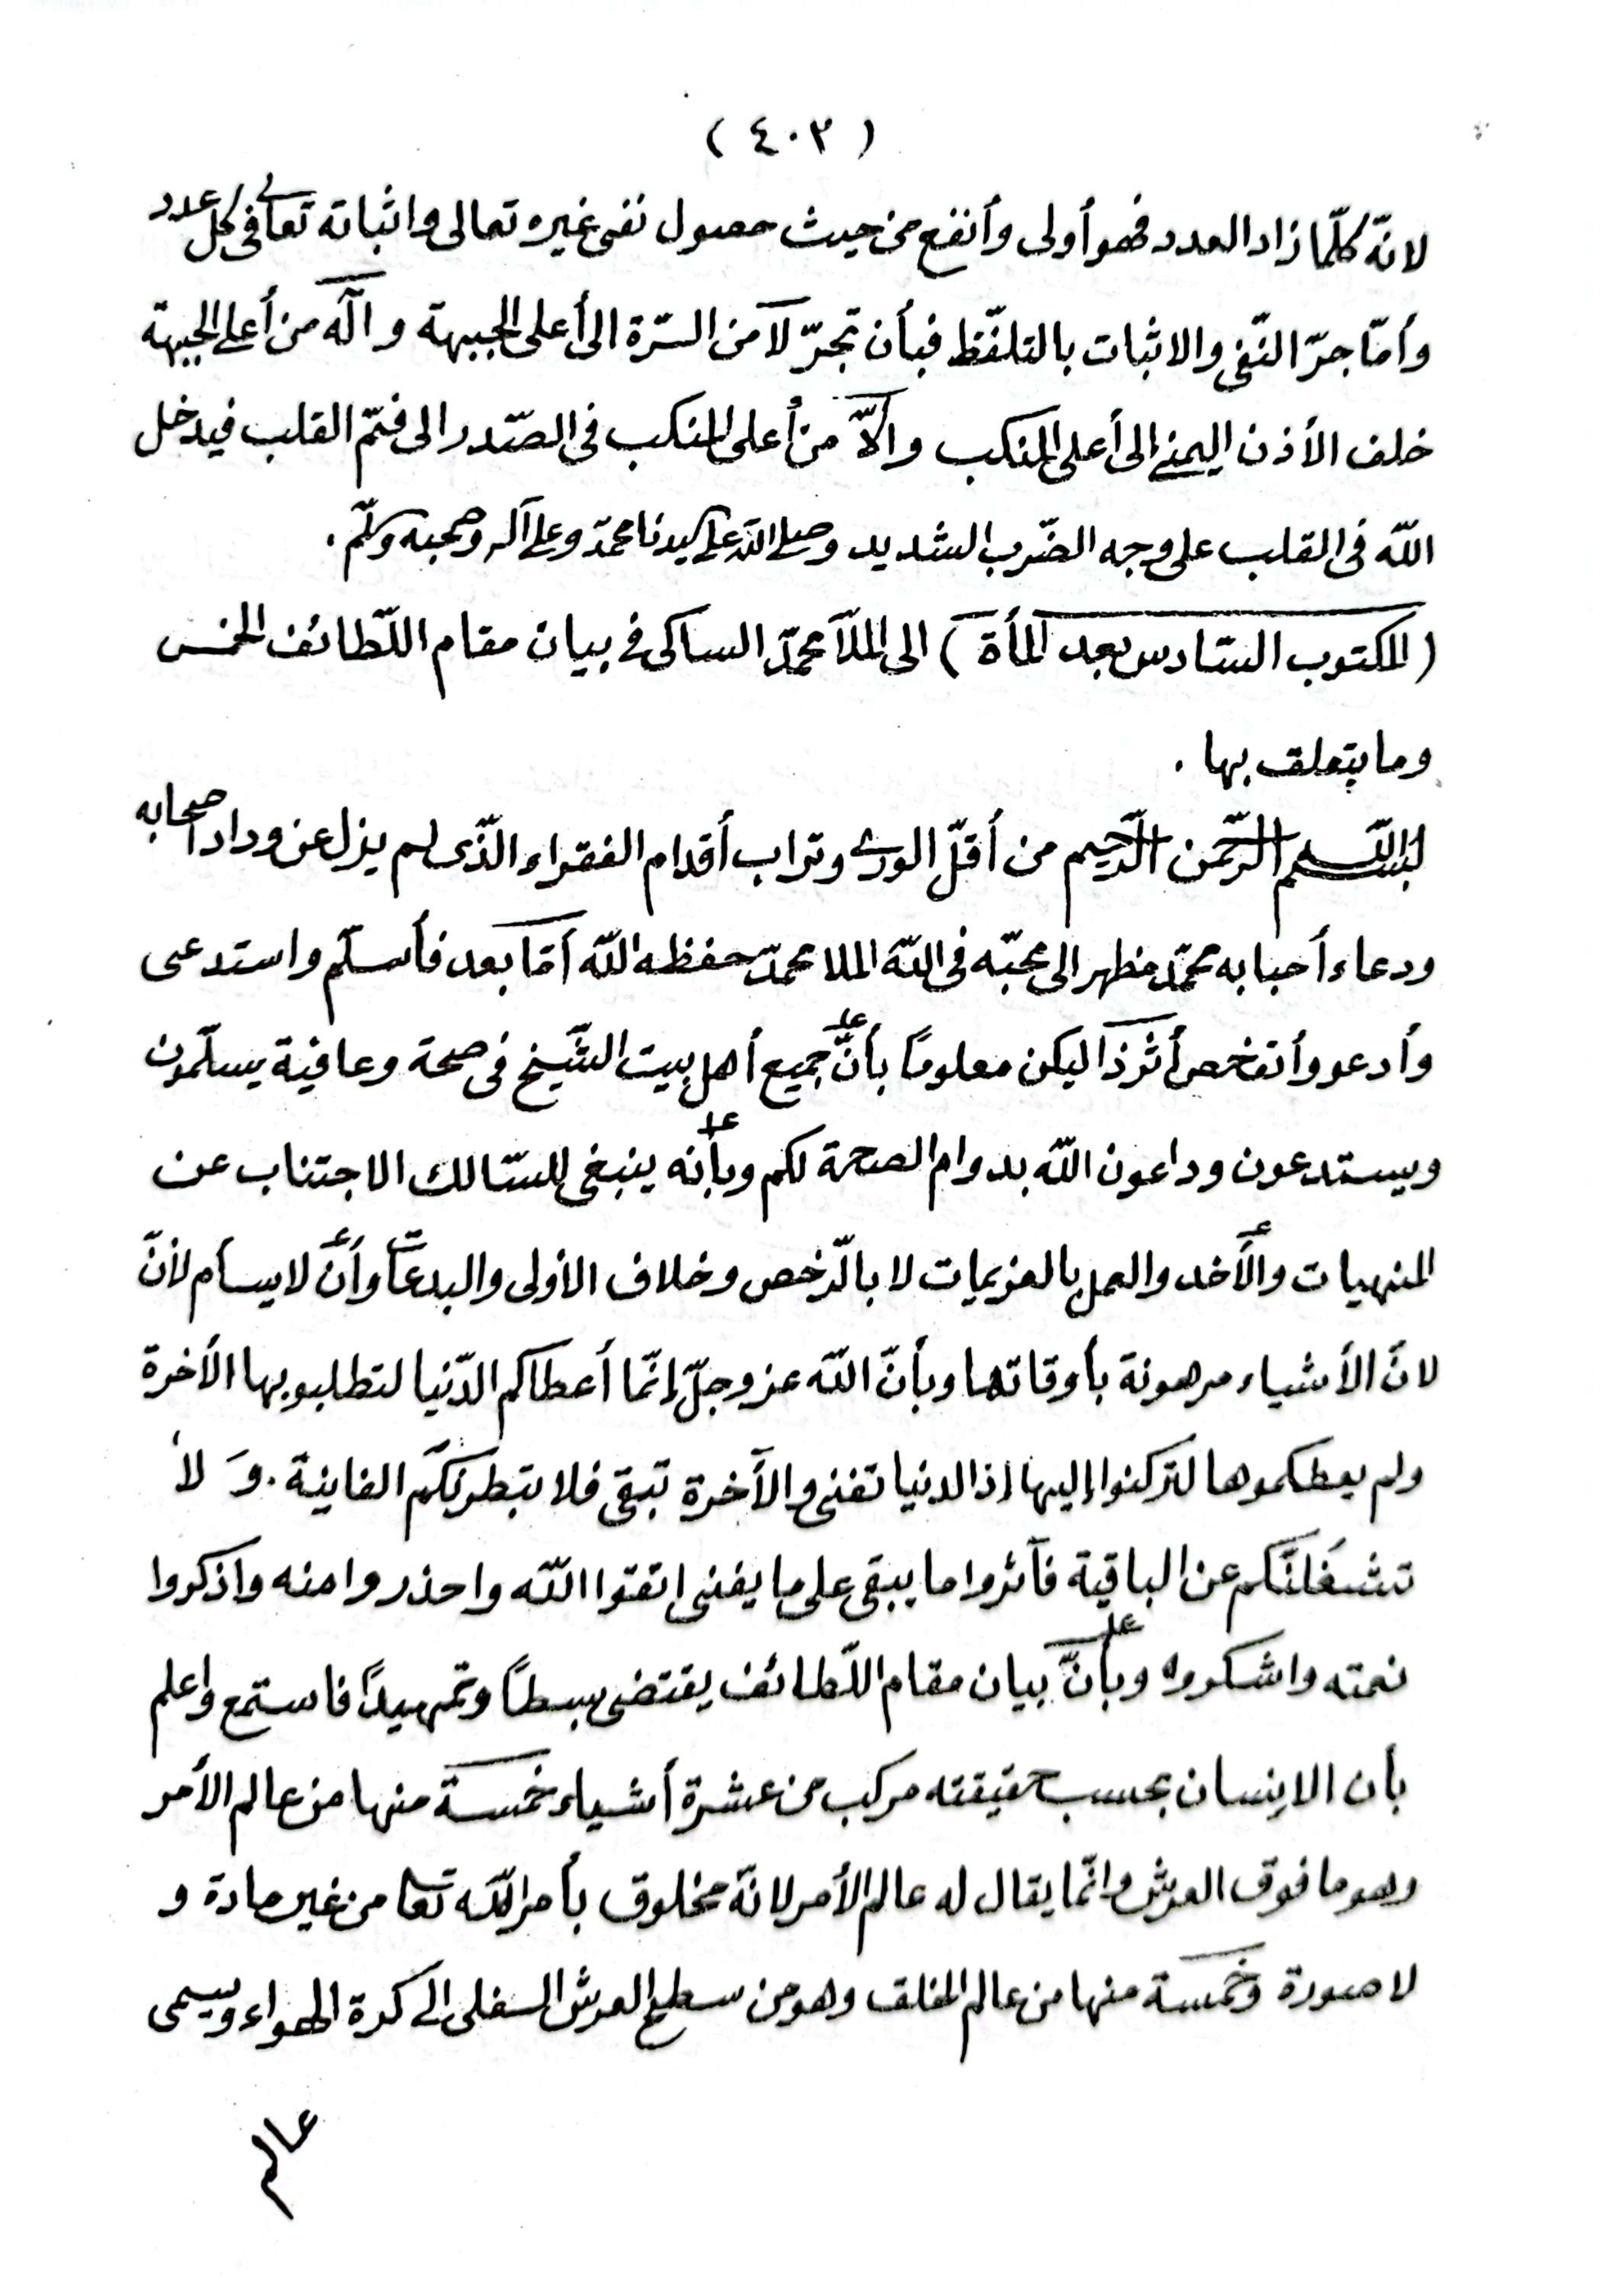 ( ٤٠٣ )
لانّه كلّما زاد العدد فهو أولى وأنفع من حيث حصول نفى غيره تعالى واثباته تعالى فى كل عدد
وأمّا جرّ النّفى والاثبات بالتلفّظ فبأن تجرّ لا من السّرة الى أعلى الجبهة و اله من أعلى الجبهة
خلف الأذن اليمنى الى أعلى المنكب و الاّ من أعلى المنكب فى الصّدر الى فمّ القلب فيدخل
اللّه فى القلب على وجه الضّرب الشديد وصلى اللّه على سيدنا محمّد وعلى آله وصحبه وسلّم .
( المكتوب السّادس بعد المأة ) الى الملاّ محمّد الساكى فى بيان مقام اللّطائف الخمس
وما يتعلق بها .
بسم اللّه الرّحمن الرّحيم من أقلّ الورى وتراب أقدام الفقراء الذّى لم يزل عن وداد أصحابه
ودعاء أحبابه محمّد مظهر الى محبّه فى اللّه الملا محمّد حفظه اللّه أمّا بعد فأسلّم واستدعى
وأدعو وأتفخص أثر ذا ليكن معلومًا بأنّ جميع أهل بيت الشّيخ فى صحة وعافية يسلّمون
ويستدعون وداعون اللّه بدوام الصحة لكم وبأنه ينبغى للسّالك الاجتناب عن
المنهيات والأخد والعمل بالعزيمات لا بالرّخص وخلاف الأولى والبدعات وأن لا يسأم لأنّ
لانّ الأشياء مرهونة بأوقاتها وبأنّ اللّه عز وجلّ إنّما أعطاكم الدّنيا لتطلبو بها الأخرة
ولم يعطكموها لتركنوا إليها اذ الدنيا تفنى والآخرة تبقى فلا تبطرنكم الفانية . وَ لا
تشغلنّكم عن الباقية فآثروا ما يبقى على ما يفنى اتقوا اللّه واحذروا منه واذكروا
نعمته واشكروا وبأنّ بيان مقام اللّطائف يقتضى بسطًا وتمهيدًا فاستمع واعلم
بأن الانسان بحسب حقيقته مركب من عشرة أشياء خمسة منها من عالم الأمر
وهو ما فوق العرش وانّما يقال له عالم الأمر لانّه مخلوق بأمر اللّه تعا من غير مادة و
لا صورة وخمسة منها من عالم الخلق وهو من سطح العرش السفلى الى كرة الهواء ويسمى
عالم